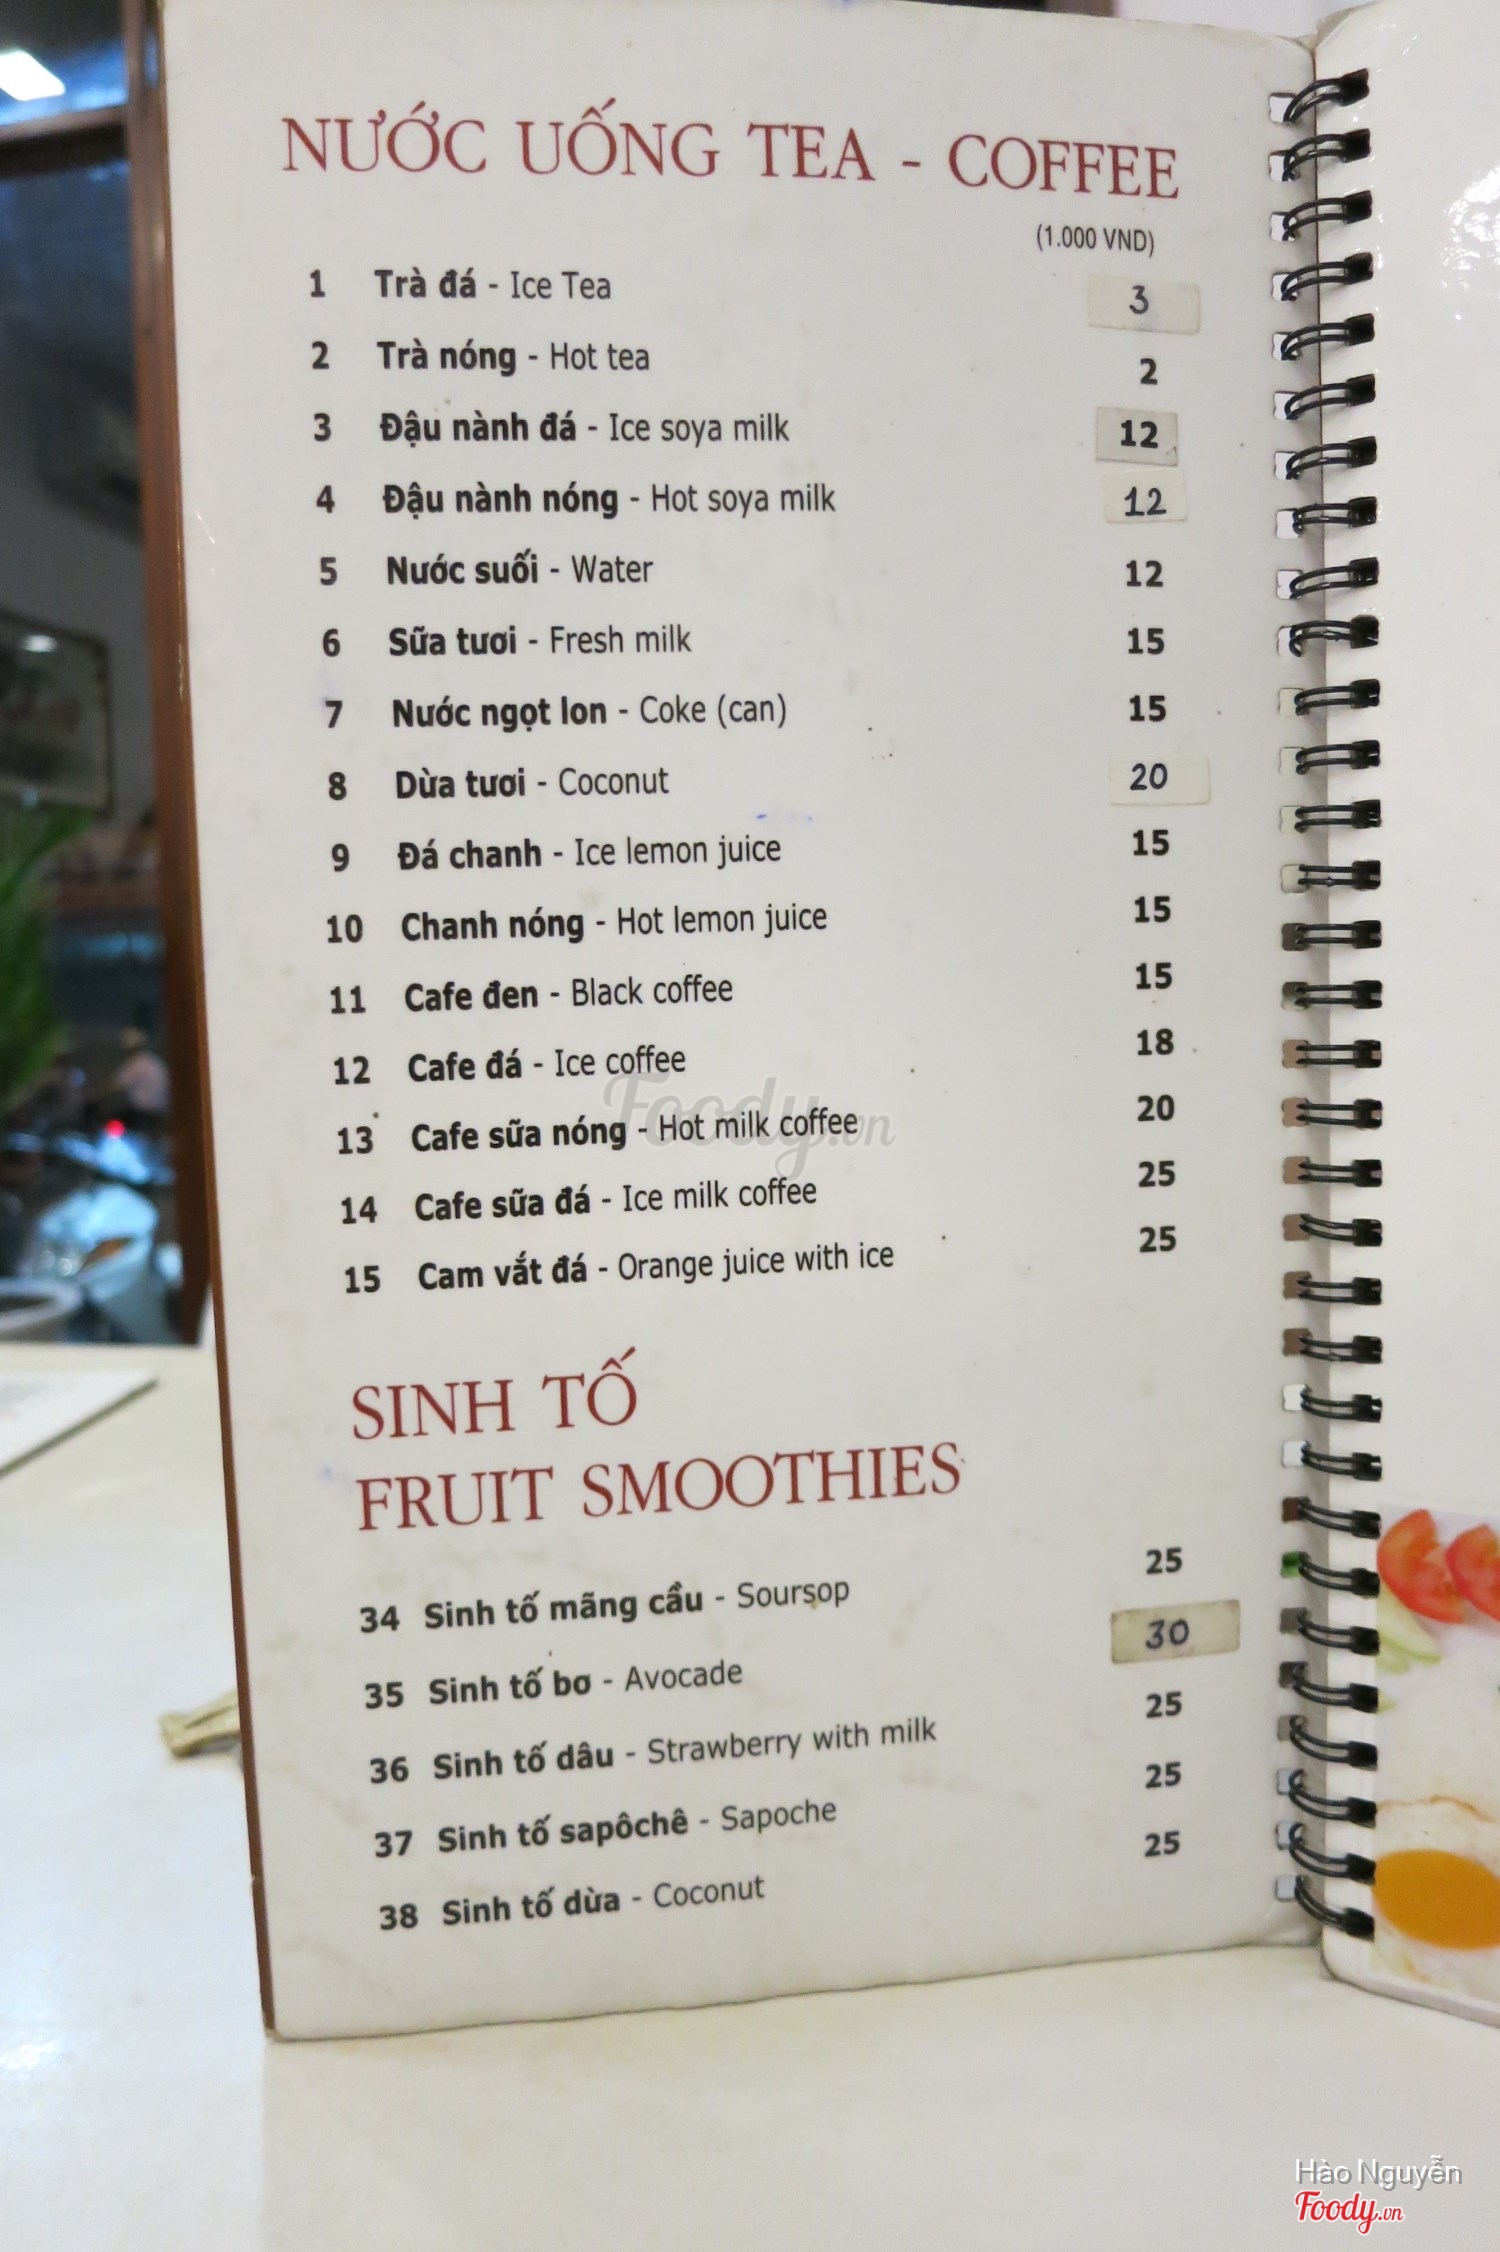 NƯỚC UỐNG TEA - COFFEE
(1.000 VND)
1 Trà đá - Ice Tea 3
2 Trà nóng - Hot tea 2
3 Đậu nành đá - Ice soya milk 12
4 Đậu nành nóng - Hot soya milk 12
5 Nước suối - Water 12
6 Sữa tươi - Fresh milk 15
7 Nước ngọt lon - Coke (can) 15
8 Dừa tươi - Coconut 20
9 Đá chanh - Ice lemon juice 15
10 Chanh nóng - Hot lemon juice 15
11 Cafe đen - Black coffee 15
12 Cafe đá - Ice coffee 18
13 Cafe sữa nóng - Hot milk coffee 20
14 Cafe sữa đá - Ice milk coffee 25
15 Cam vắt đá - Orange juice with ice 25
Foody.vn
SINH TỐ
FRUIT SMOOTHIES
34 Sinh tố mãng cầu - Soursop 25
35 Sinh tố bơ - Avocade 30
36 Sinh tố dâu - Strawberry with milk 25
37 Sinh tố sapôchê - Sapoche 25
38 Sinh tố dừa - Coconut 25
Hào Nguyễn
Foody.vn